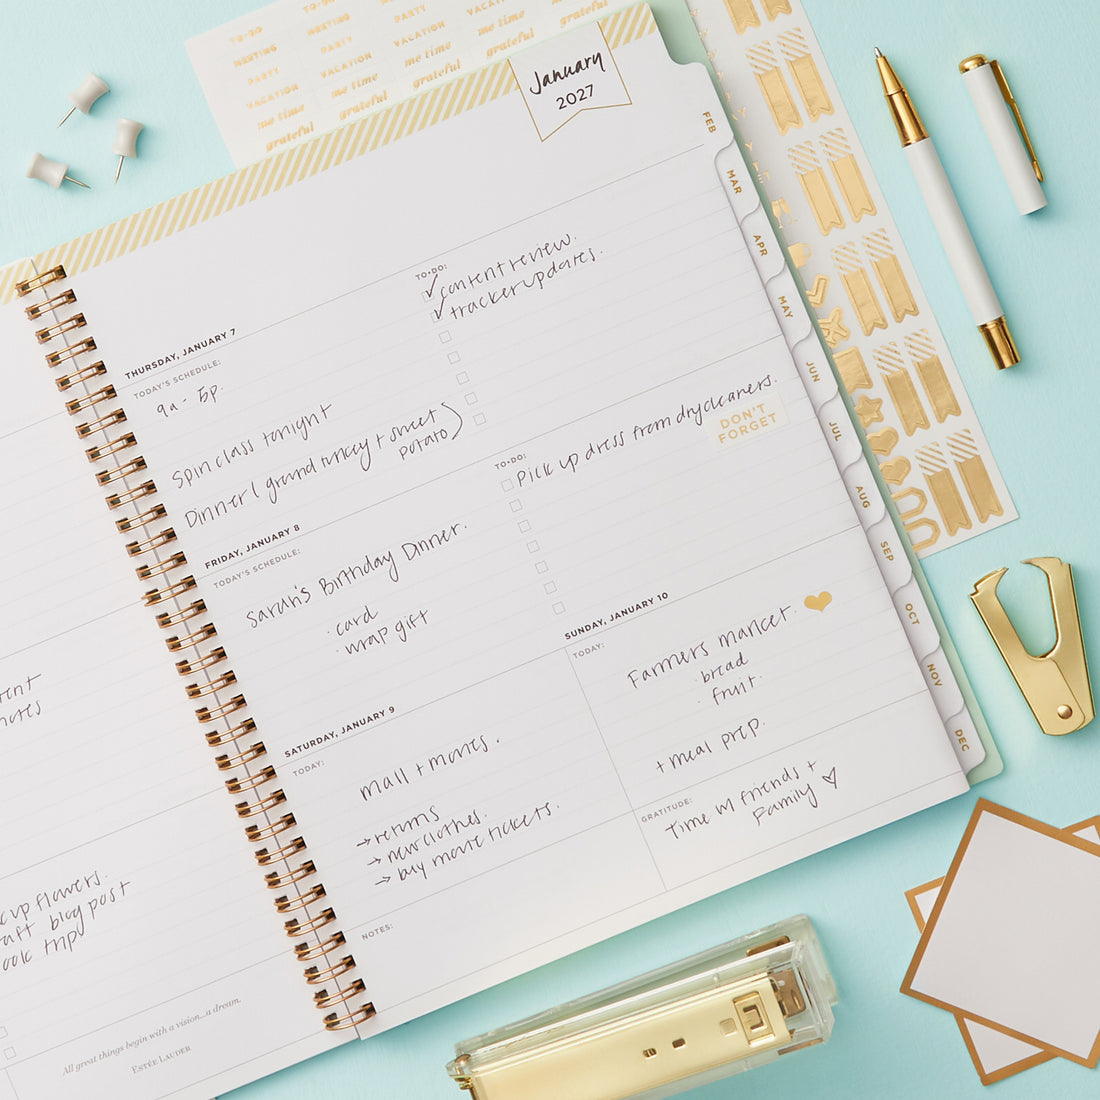 TO-DO
MEETING
PARTY
VACATION
me time
grateful
TO-DO
MEETING
PARTY
VACATION
me time
grateful
PARTY
VACATION
me time
grateful
VACATION
me time
grateful
January
2027
FEB
MAR
APR
MAY
JUN
JUL
AUG
SEP
OCT
NOV
DEC
THURSDAY, JANUARY 7
TODAY'S SCHEDULE:
9a - 5p.
Spin class tonight
Dinner (ground turkey + sweet
potato)
TO-DO:
content review.
tracker updates.
FRIDAY, JANUARY 8
TODAY'S SCHEDULE:
Sarah's Birthday Dinner.
· card
· wrap gift
TO-DO:
Pick up dress from drycleaners.
DON'T
FORGET
SATURDAY, JANUARY 9
TODAY:
mall + movies.
→ returns
→ new clothes.
→ buy movie tickets.
SUNDAY, JANUARY 10
TODAY:
Farmers market.
· bread
· fruit.
+ meal prep.
GRATITUDE:
Time w/ friends +
Family
NOTES:
up flowers.
blog post
trip
All great things begin with a vision...a dream.
ESTÉE LAUDER